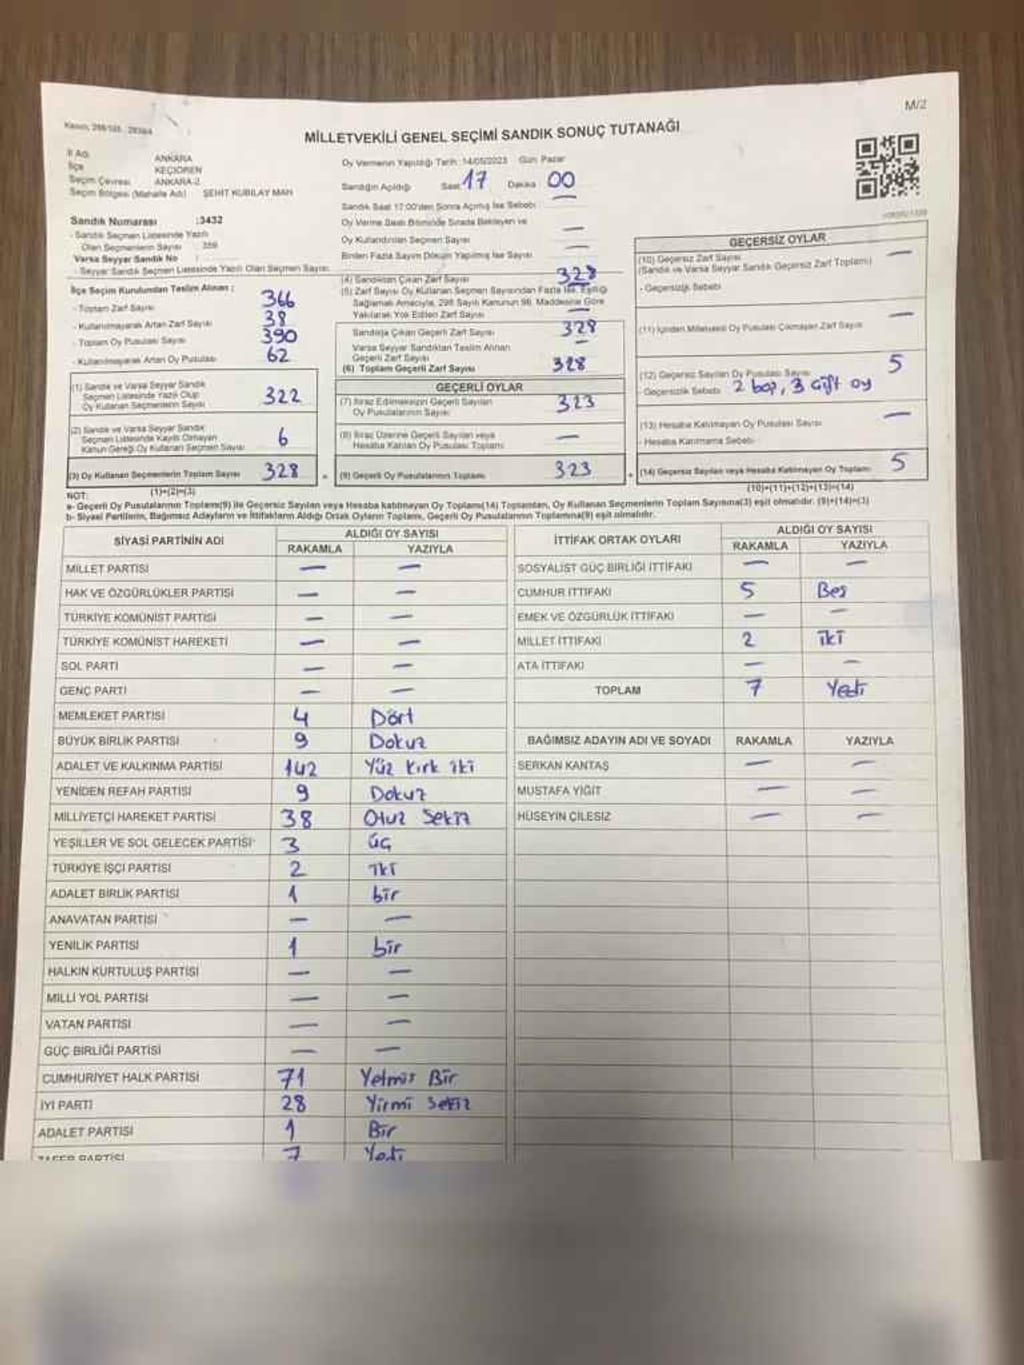 M/2
MİLLETVEKİLİ GENEL SEÇİMİ SANDIK SONUÇ TUTANAĞI
İl Adı ANKARA
İlçe KEÇİÖREN
Seçim Çevresi ANKARA-2
Seçim Bölgesi (Mahalle Adı) ŞEHİT KUBİLAY MAH
Oy Vermenin Yapıldığı Tarih :14/05/2023 Gün Pazar
Sandığın Açıldığı Saat 17 Dakika 00
Sandık Saat 17:00'den Sonra Açılmış İse Sebebi —
Oy Verme Saati Bitiminde Sırada Bekleyen ve
Oy Kullandırılan Seçmen Sayısı —
Birden Fazla Sayım Döküm Yapılmış İse Sayısı —
Sandık Numarası :3432
- Sandık Seçmen Listesinde Yazılı
Olan Seçmenlerin Sayısı : 359
Varsa Seyyar Sandık No :
- Seyyar Sandık Seçmen Listesinde Yazılı Olan Seçmen Sayısı:
İlçe Seçim Kurulundan Teslim Alınan :
- Toplam Zarf Sayısı 366
- Kullanılmayarak Artan Zarf Sayısı 38
- Toplam Oy Pusulası Sayısı 390
- Kullanılmayarak Artan Oy Pusulası 62
(1) Sandık ve Varsa Seyyar Sandık
Seçmen Listesinde Yazılı Olup
Oy Kullanan Seçmenlerin Sayısı 322
(2) Sandık ve Varsa Seyyar Sandık
Seçmen Listesinde Kayıtlı Olmayan
Kanun Gereği Oy Kullanan Seçmen Sayısı 6
(3) Oy Kullanan Seçmenlerin Toplam Sayısı 328
(4) Sandıktan Çıkan Zarf Sayısı 328
(5) Zarf Sayısı Oy Kullanan Seçmen Sayısından Fazla İse, Eşitliği
Sağlamak Amacıyla, 298 Sayılı Kanunun 98. Maddesine Göre
Yakılarak Yok Edilen Zarf Sayısı —
Sandıkta Çıkan Geçerli Zarf Sayısı 328
Varsa Seyyar Sandıktan Teslim Alınan
Geçerli Zarf Sayısı —
(6) Toplam Geçerli Zarf Sayısı 328
GEÇERLİ OYLAR
(7) İtiraz Edilmeksizin Geçerli Sayılan
Oy Pusulalarının Sayısı 323
(8) İtiraz Üzerine Geçerli Sayılan veya
Hesaba Katılan Oy Pusulası Toplamı —
= (9) Geçerli Oy Pusulalarının Toplamı 323
GEÇERSİZ OYLAR
(10) Geçersiz Zarf Sayısı —
(Sandık ve Varsa Seyyar Sandık Geçersiz Zarf Toplamı)
- Geçersizlik Sebebi
(11) İçinden Milletvekili Oy Pusulası Çıkmayan Zarf Sayısı —
(12) Geçersiz Sayılan Oy Pusulası Sayısı 5
- Geçersizlik Sebebi 2 boş, 3 çift oy
(13) Hesaba Katılmayan Oy Pusulası Sayısı —
- Hesaba Katılmama Sebebi
+ (14) Geçersiz Sayılan veya Hesaba Katılmayan Oy Toplamı 5
NOT: (1)+(2)=(3) (10)+(11)+(12)+(13)=(14)
a- Geçerli Oy Pusulalarının Toplamı(9) ile Geçersiz Sayılan veya Hesaba katılmayan Oy Toplamı(14) Toplamları, Oy Kullanan Seçmenlerin Toplam Sayısına(3) eşit olmalıdır. (9)+(14)=(3)
b- Siyasi Partilerin, Bağımsız Adayların ve İttifakların Aldığı Ortak Oyların Toplamı, Geçerli Oy Pusulalarının Toplamına(9) eşit olmalıdır.
SİYASİ PARTİNİN ADI ALDIĞI OY SAYISI
RAKAMLA YAZIYLA
MİLLET PARTİSİ — —
HAK VE ÖZGÜRLÜKLER PARTİSİ — —
TÜRKİYE KOMÜNİST PARTİSİ — —
TÜRKİYE KOMÜNİST HAREKETİ — —
SOL PARTİ — —
GENÇ PARTİ — —
MEMLEKET PARTİSİ 4 Dört
BÜYÜK BİRLİK PARTİSİ 9 Dokuz
ADALET VE KALKINMA PARTİSİ 142 Yüz kırk iki
YENİDEN REFAH PARTİSİ 9 Dokuz
MİLLİYETÇİ HAREKET PARTİSİ 38 Otuz Sekiz
YEŞİLLER VE SOL GELECEK PARTİSİ 3 üç
TÜRKİYE İŞÇİ PARTİSİ 2 İki
ADALET BİRLİK PARTİSİ 1 bir
ANAVATAN PARTİSİ — —
YENİLİK PARTİSİ 1 bir
HALKIN KURTULUŞ PARTİSİ — —
MİLLİ YOL PARTİSİ — —
VATAN PARTİSİ — —
GÜÇ BİRLİĞİ PARTİSİ — —
CUMHURİYET HALK PARTİSİ 71 Yetmiş Bir
İYİ PARTİ 28 Yirmi Sekiz
ADALET PARTİSİ 1 Bir
ZAFER PARTİSİ 7 Yedi
İTTİFAK ORTAK OYLARI ALDIĞI OY SAYISI
RAKAMLA YAZIYLA
SOSYALİST GÜÇ BİRLİĞİ İTTİFAKI — —
CUMHUR İTTİFAKI 5 Beş
EMEK VE ÖZGÜRLÜK İTTİFAKI — —
MİLLET İTTİFAKI 2 iki
ATA İTTİFAKI — —
TOPLAM 7 Yedi
BAĞIMSIZ ADAYIN ADI VE SOYADI RAKAMLA YAZIYLA
SERKAN KANTAŞ — —
MUSTAFA YİĞİT — —
HÜSEYİN ÇİLESİZ — —